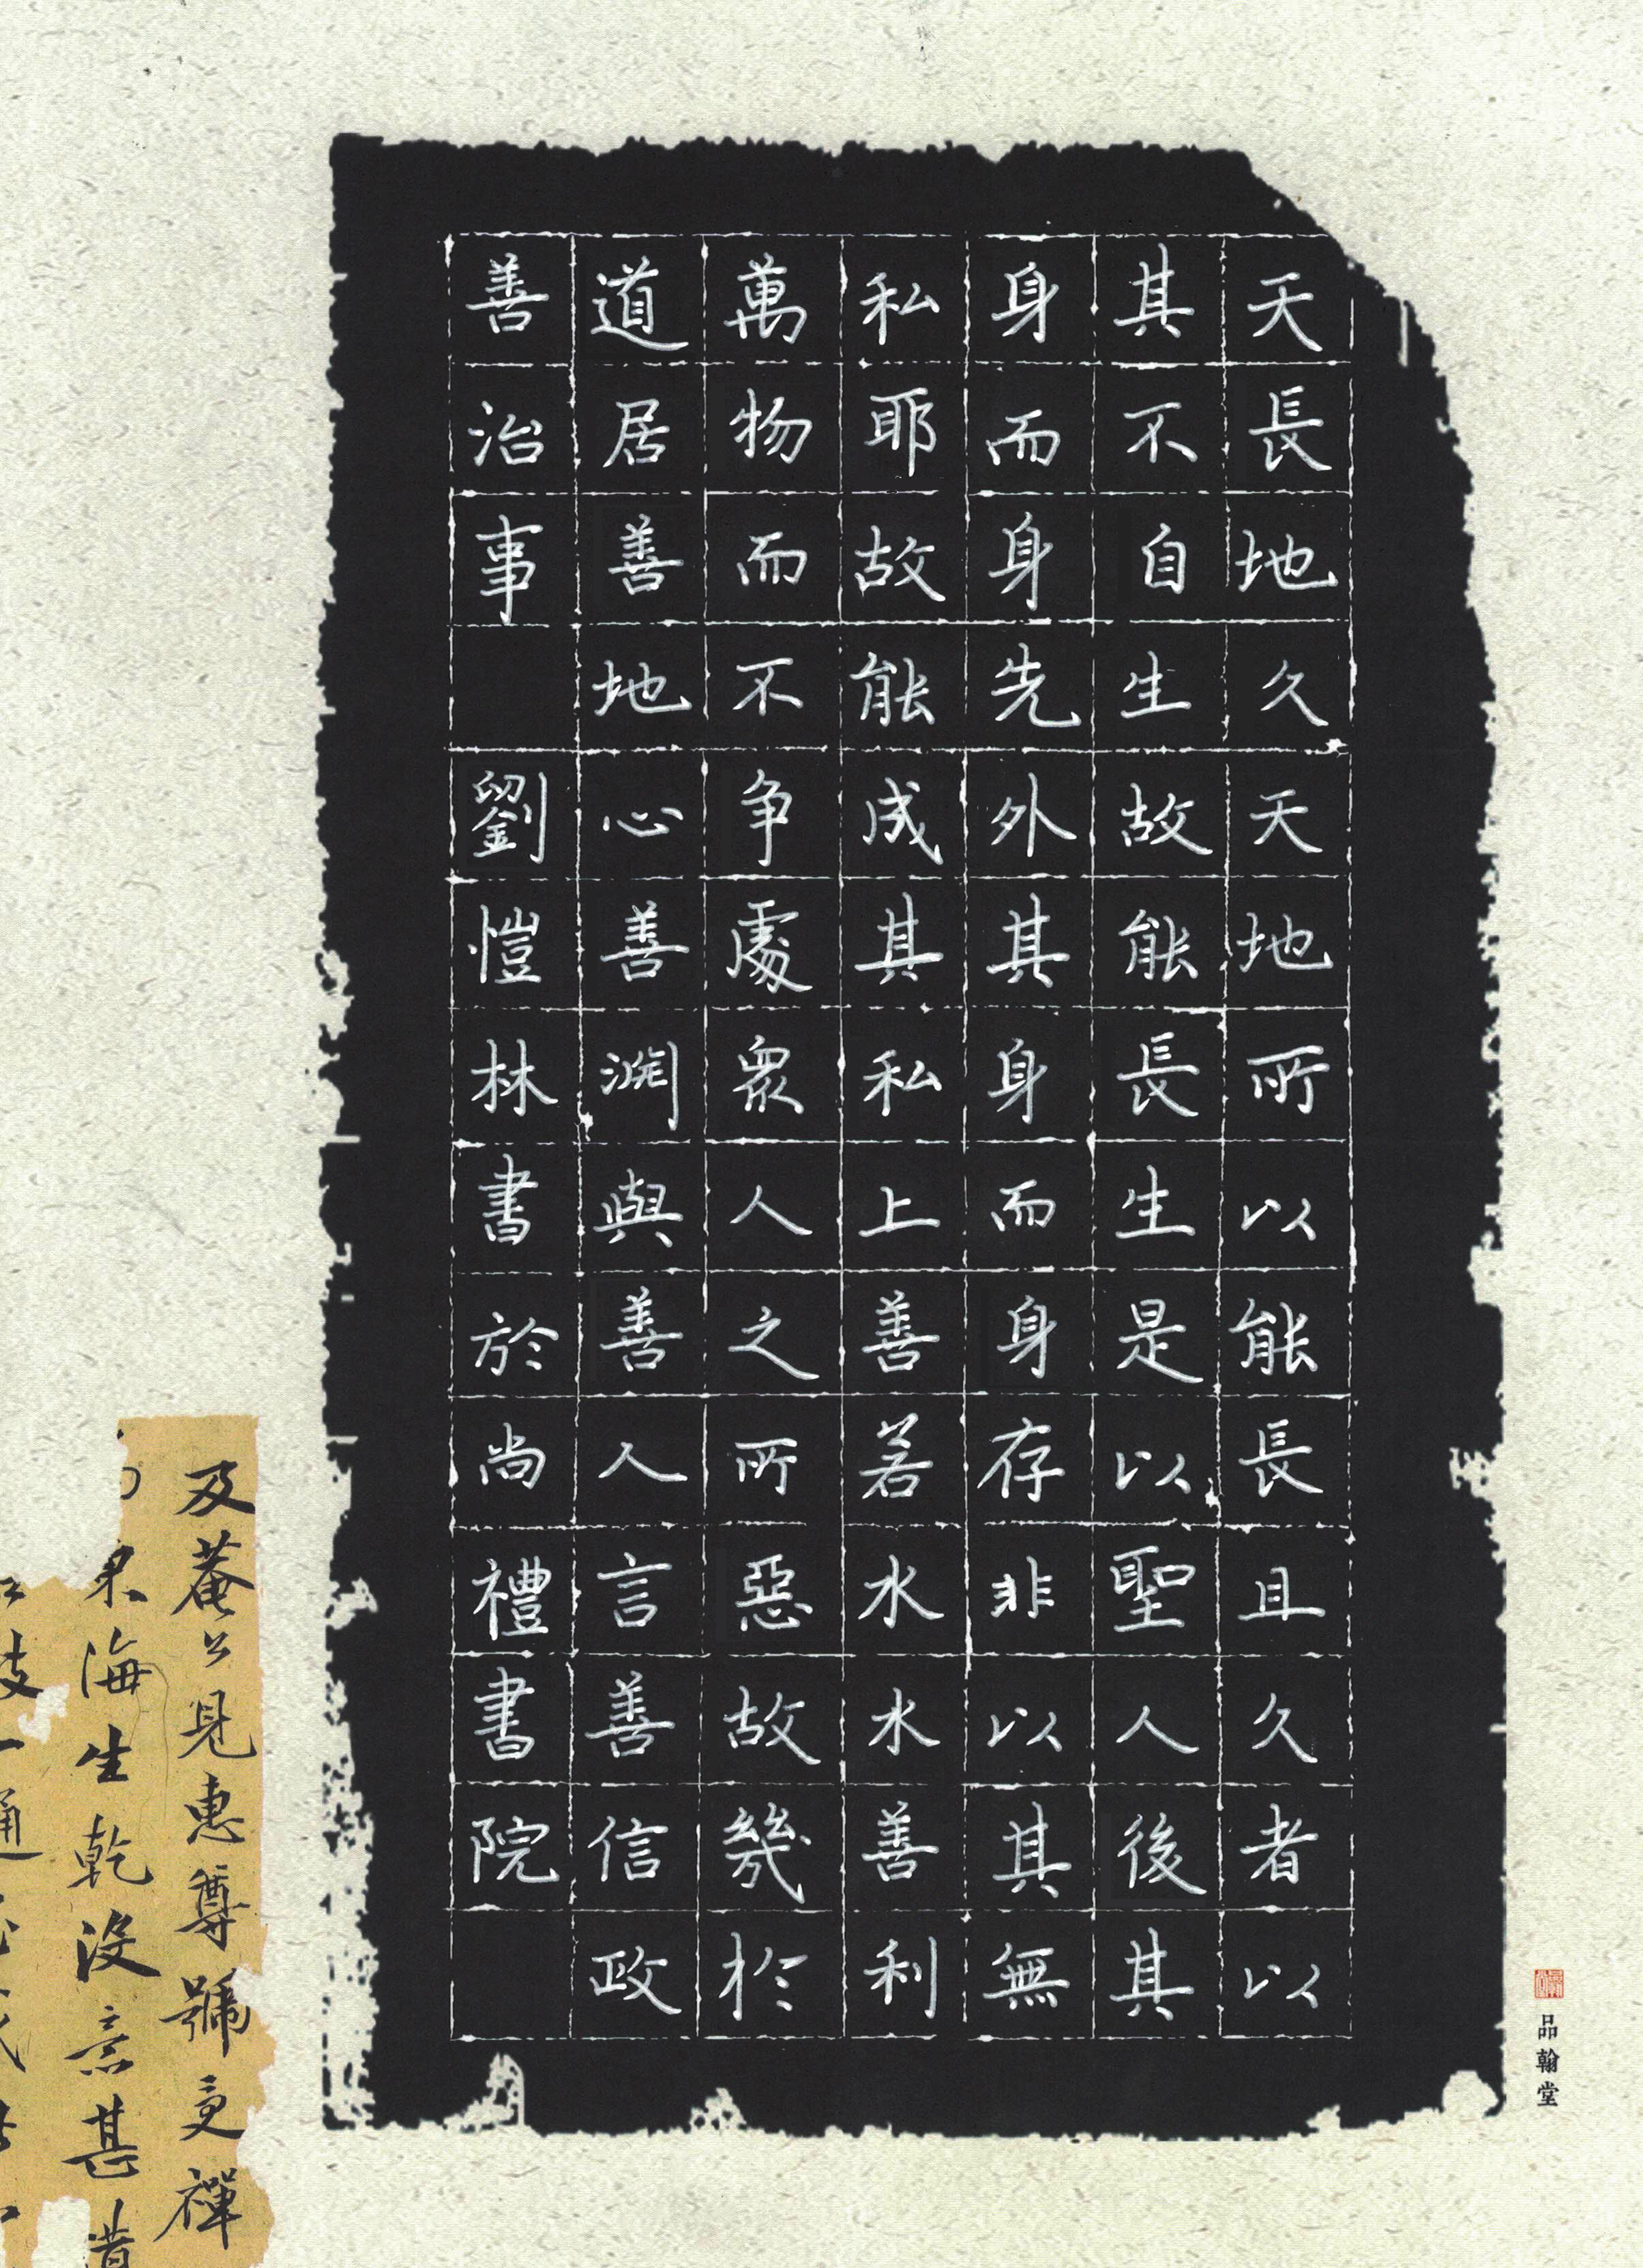 天長地久天地所以能長且久者以
其不自生故能長生是以聖人後其
身而身先外其身而身存非以其無
私耶故能成其私上善若水水善利
萬物而不争處衆人之所惡故幾於
道居善地心善淵與善人言善信政
善治事 劉愷林書於尚禮書院
品翰堂
及菴公見惠尊號更禪
來海生乾没意甚昔